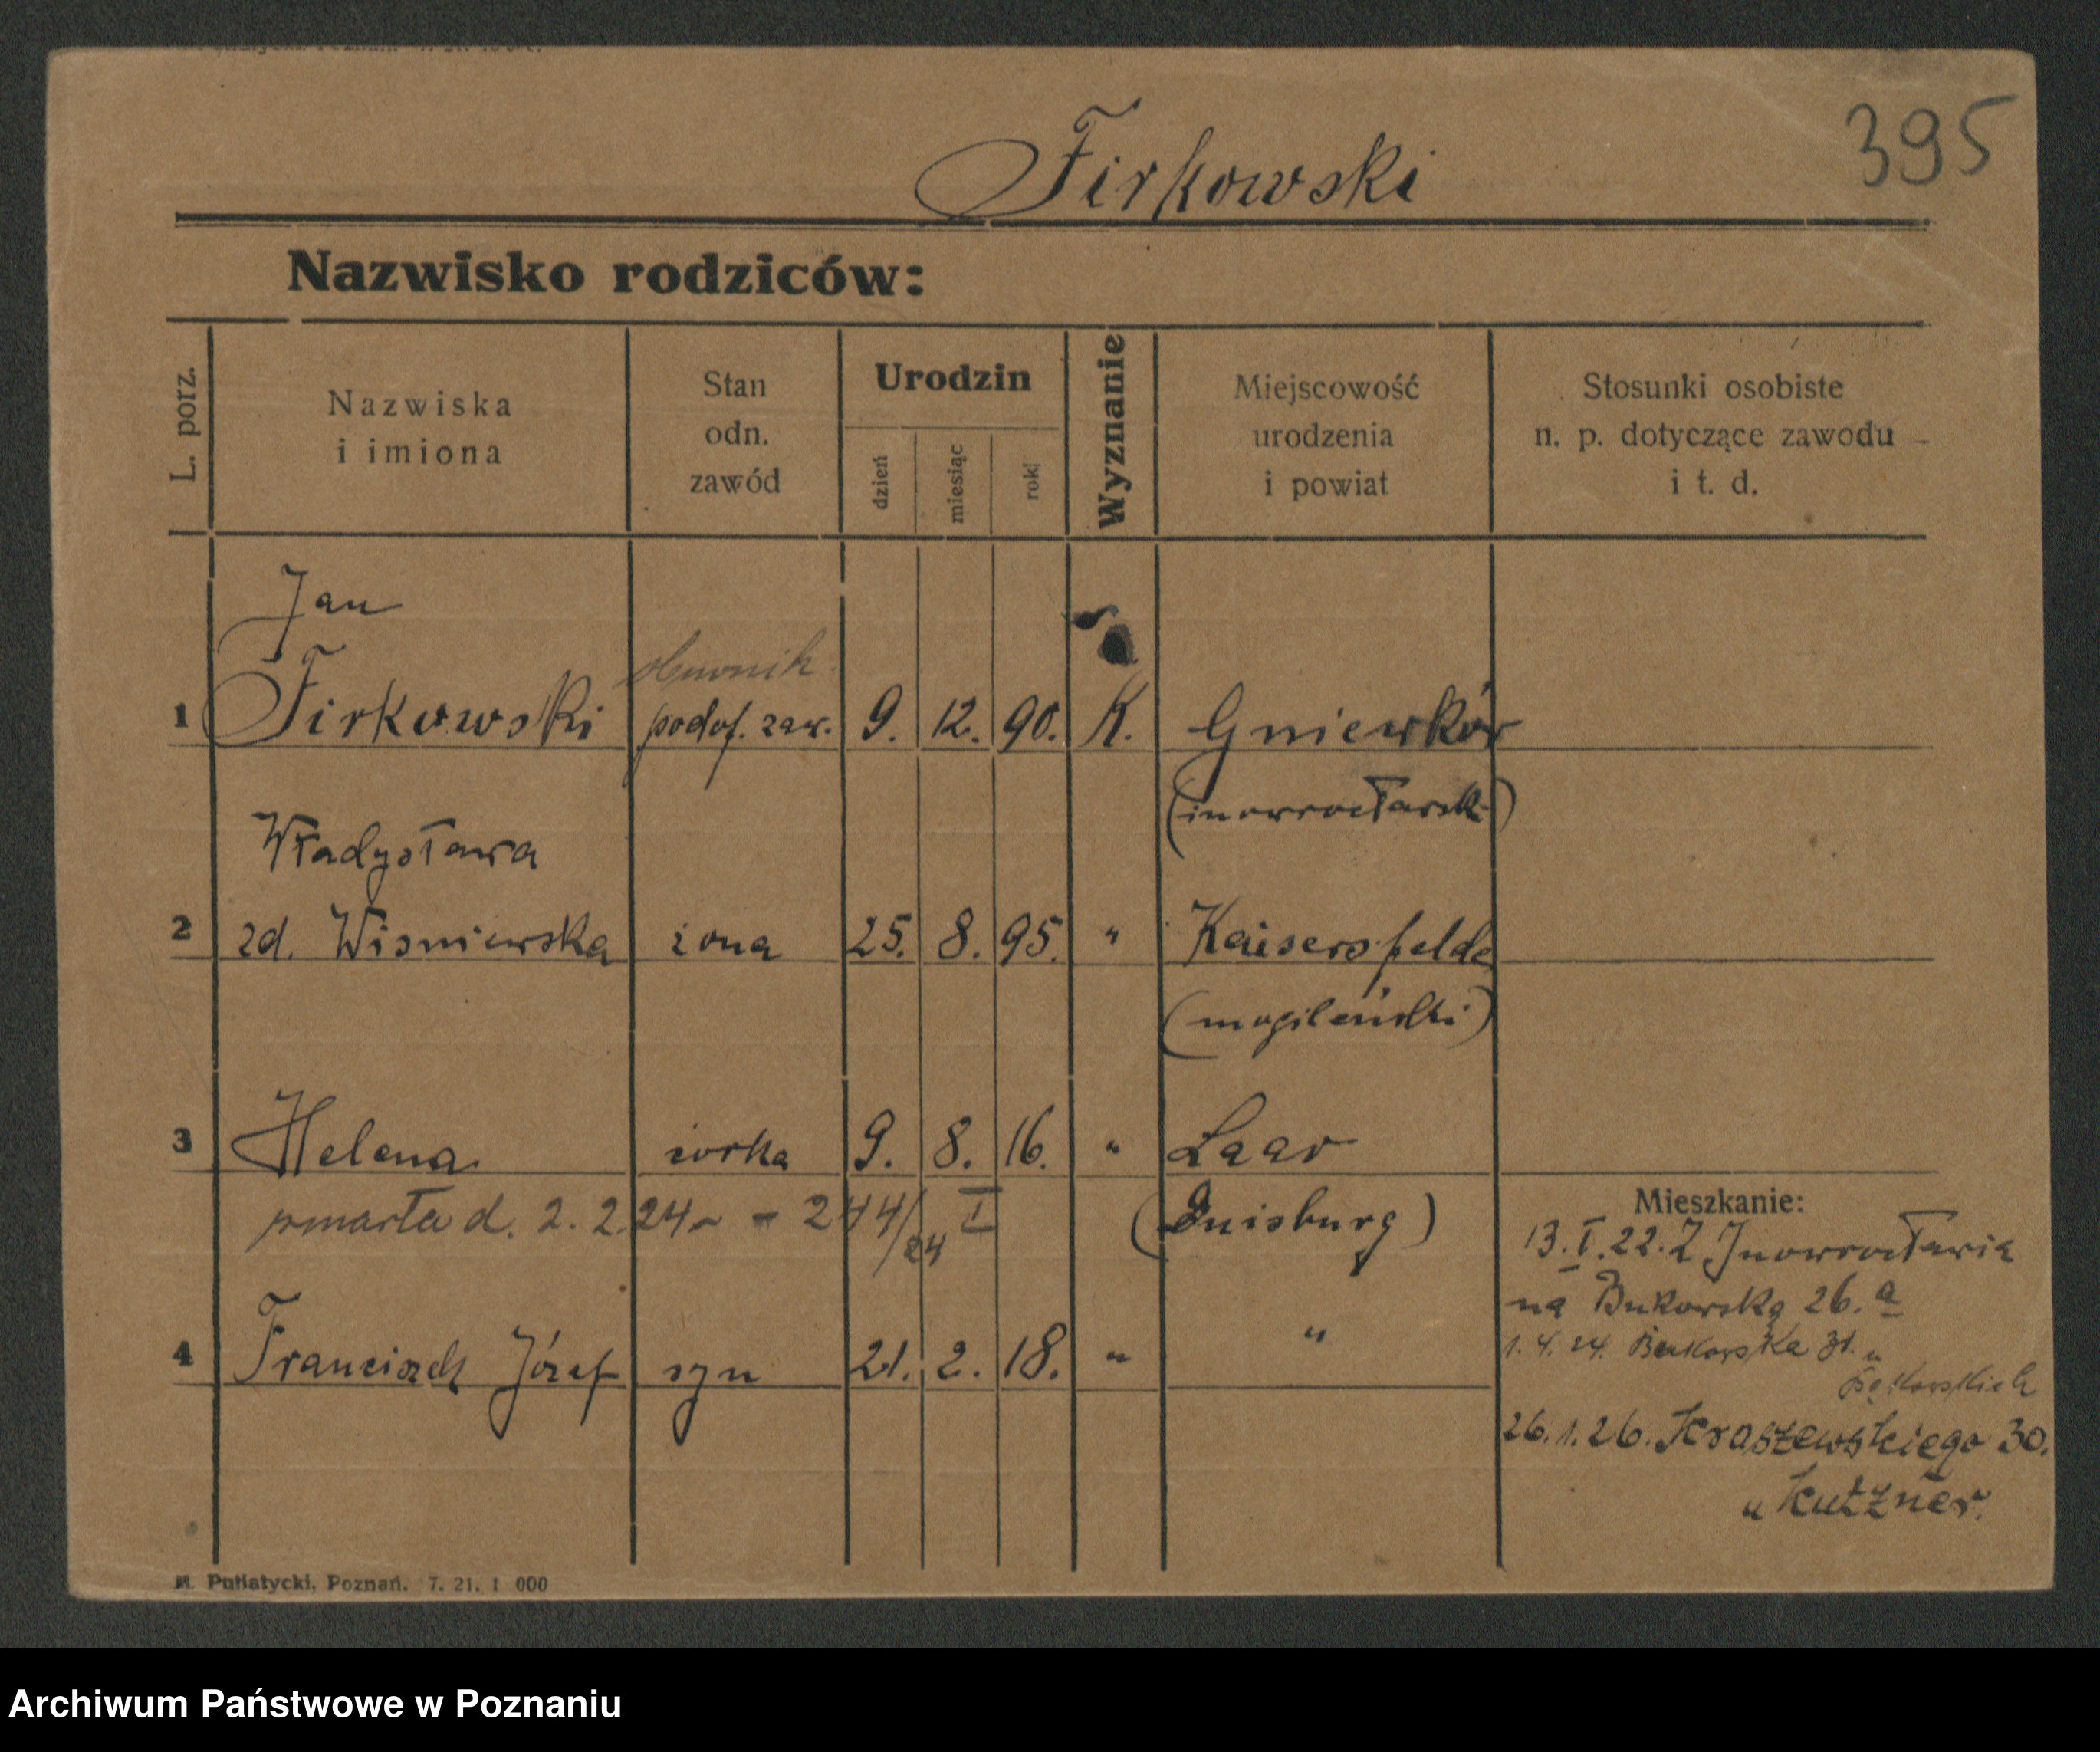 Firkowski
395
Nazwisko rodziców:
L. porz.
Nazwiska
i imiona
Stan
odn.
zawód
Urodzin
dzień
miesiąc
rok
Wyznanie
Miejscowość
urodzenia
i powiat
Stosunki osobiste
n. p. dotyczące zawodu
i t. d.
Jan
1 Firkowski podof. zaw. 9. 12. 90. K. Gniewków
(inowrocławsk.)
Władysława
2 zd. Wisniewska żona 25. 8. 95. " Kaisersfelde
(mogileński)
3 Helena córka 9. 8. 16. " Laar
zmarła d. 2. 2. 24 - 244/24 I (Duisburg)
4 Franciszek Józef syn 21. 2. 18. " "
Mieszkanie:
13. I. 22. Z Inowrocławia
na Bukowską 26. a
1. 4. 24. Bukowska 31. u
26. 1. 26. Kraszewskiego 30.
u Kutzner.
M. Putiatycki, Poznań. 7. 21. 1 000
Archiwum Państwowe w Poznaniu